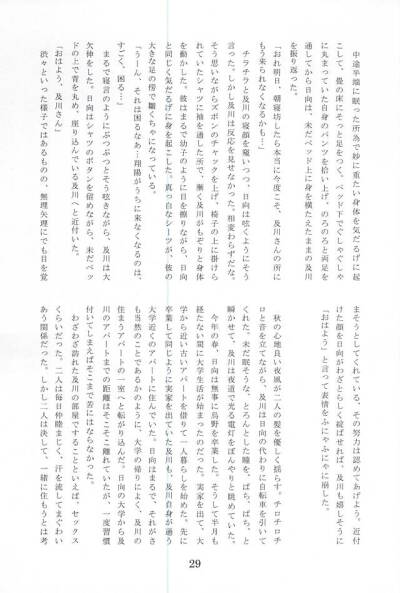 中途半端に眠った所為で妙に重たい身体を気だるげに起
こして、畳の床にそっと足をつく。ベッド下でぐしゃぐしゃ
に丸まっていた自身のパンツを拾い上げ、のろのろと両足を
通してから日向は、未だベッド上に身を横たえたままの及川
を振り返った。
「おれ明日、朝寝坊したら本当に今度こそ、及川さんの所に
もう来られなくなるかも…」
チラチラと及川の寝顔を窺いつつ、日向は呟くようにそう
言った。しかし及川は反応を見せなかった。相変わらずだな。
そう思いながらズボンのチャックを上げ、椅子の上に掛けら
れていたシャツに袖を通した所で、漸く及川がもぞりと身体
を動かした。彼はまるで幼子のように目を擦りながら、日向
と同じく気だるげに身を起こした。真っ白なシーツが、彼の
大きな足の傍で皺くちゃになっている。
「うーん、それは困るなあ…翔陽がうちに来なくなるのは、
すごく、困る…」
まるで寝言のようにぶつぶつとそう呟きながら、及川は大
欠伸をした。日向はシャツのボタンを留めながら、未だベッ
ドの上で背を丸め、座り込んでいる及川へと近付いた。
「おはよう、及川さん」
渋々といった様子ではあるものの、無理矢理にでも目を覚
まそうとしてくれている、その努力は認めてあげよう。近付
けた顔を日向がわざとらしく綻ばせれば、及川も嬉しそうに
「おはよう」と言って表情をふにゃふにゃに崩した。
秋の心地良い夜風が二人の髪を優しく揺らす。チロチロチ
ロと音を立てながら、及川は日向の代わりに自転車を引いて
くれた。未だ眠そうな、とろんとした瞳を、ぱち、ぱち、と
瞬かせて、及川は夜道で光る電灯をぼんやりと眺めていた。
今年の春、日向は無事に烏野を卒業した。そうして半月も
経たない間に大学生活が始まったのだった。実家を出て、大
学から近い古いアパートを借りて一人暮らしを始めた。先に
卒業して同じように実家を出ていた及川も、及川自身が通う
大学近くのアパートに住んでいた。日向はまるで、それがさ
も当然のことであるかのように、大学の帰りによく、及川の
住まうアパートの一室へと転がり込んだ。日向の大学から及
川のアパートまでの距離はそこそこ離れていたが、一度習慣
付いてしまえばそこまで苦にはならなかった。
わざわざ訪れた及川の部屋ですることといえば、セックス
くらいだった。二人は毎日仲睦まじく、汗を流してまぐわい
あう関係だった。しかし二人は決して、一緒に住もうとは考
29